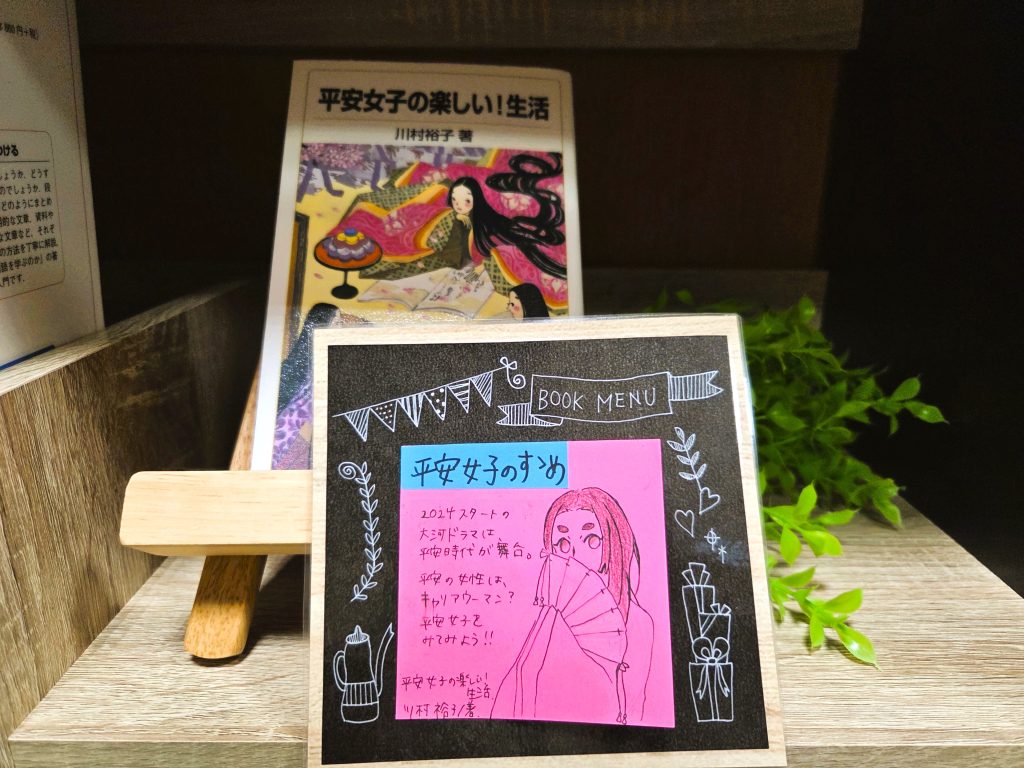 平安女子の楽しい!生活
川村裕子 著
BOOK MENU
平安女子のすゝめ
2024スタートの
大河ドラマは、
平安時代が舞台。
平安の女性は、
キャリアウーマン?
平安女子を
みてみよう!!
平安女子の楽しい!
生活
川村裕子/著
860円+税)
つける
しょうか、どうす
のでしょうか。段
どのようにまとめ
的な文章、資料や
な文章など、それぞ
の方法を丁寧に解説。
語を学ぶのか』の著
入門です.